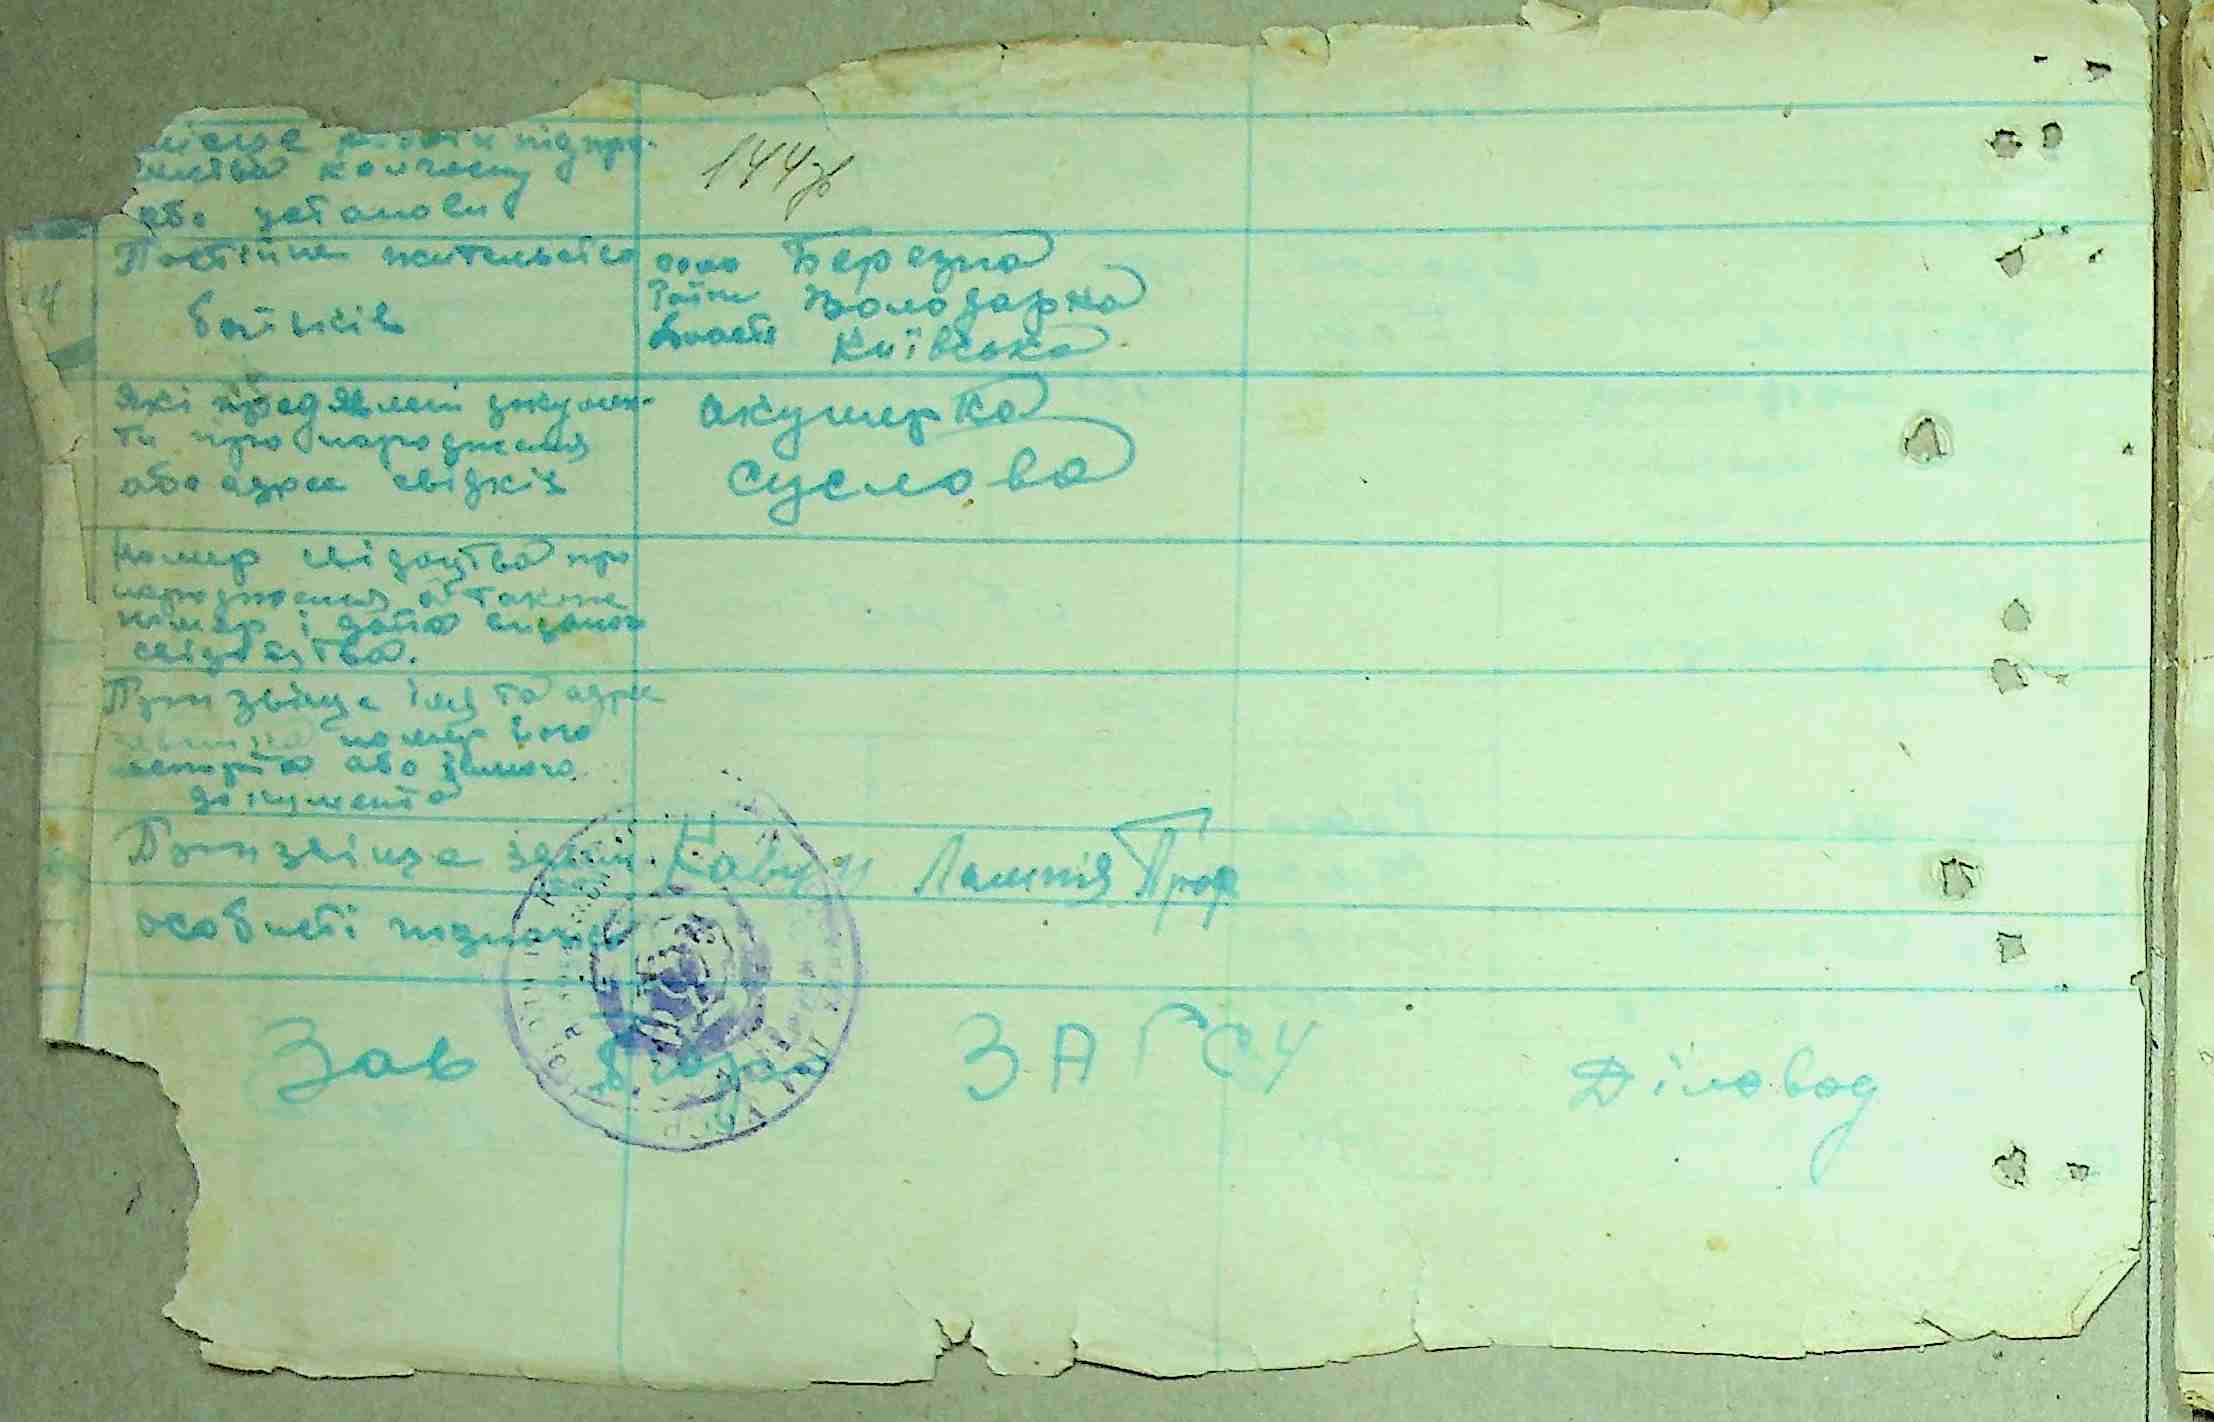 місце роботи підпри-
ємства колгоспу
або установи
144 зв
4
Постійне жительство
батьків
село Березна
Район Володарка
область Київська
Які пред'явлені докумен-
ти про народження
або адрес свідків
акушерка
Суслова
Номер свідоцтва про
народження а також
номер і дата
свідоцтва.
Прізвище імя та адрес
номер його
паспорта або іншого
документа
Прізвище
Кавун
особисті
Зав ЗАГСУ Діловод
УРСР